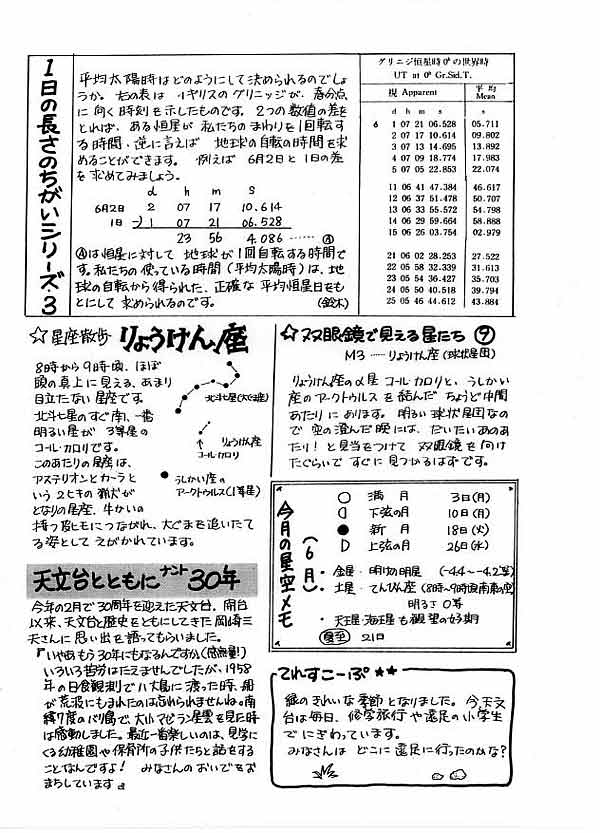 1日の長さのちがいシリーズ・3
平均太陽時はどのようにして決められるのでしょ
うか。右の表は イギリスの グリニッジが、春分点
に向く時刻を示したものです。2つの数値の差を
とれば、ある恒星が 私たちのまわりを1回転す
る時間、逆に言えば 地球の自転の時間を求
めることができます。 例えば 6月2日と1日の差
を求めてみましょう。
d h m s
6月2日 2 07 17 10.614
1日 -) 1 07 21 06.528
23 56 4.086 …… Ⓐ
Ⓐは恒星に対して 地球が1回自転する時間で
す。私たちの使っている時間(平均太陽時)は、地
球の自転から得られた、正確な 平均恒星日をも
とにして 求められるのです。 (鈴木)
グリニジ恒星時0ʰの世界時
UT at 0ʰ Gr.Sid.T.
視 Apparent 平均 Mean
d h m s s
6 1 07 21 06.528 05.711
2 07 17 10.614 09.802
3 07 13 14.695 13.892
4 07 09 18.774 17.983
5 07 05 22.853 22.074
11 06 41 47.384 46.617
12 06 37 51.478 50.707
13 06 33 55.572 54.798
14 06 29 59.664 58.888
15 06 26 03.754 02.979
21 06 02 28.253 27.522
22 05 58 32.339 31.613
23 05 54 36.427 35.703
24 05 50 40.518 39.794
25 05 46 44.612 43.884
☆星座散歩 りょうけん座
8時から9時頃、ほぼ
頭の真上に見える、あまり
目立たない星座です。
北斗七星のすぐ南、一番
明るい星が 3等星の
コール・カロリです。
このあたりの星座は、
アステリオンとカーラと
いう 2ひきの 猟犬が
となりの星座、牛かいの
持つ皮ひもにつながれ、大ぐまを追いたて
る姿として えがかれています。
北斗七星(大ぐま座)
↑ りょうけん座
コール・カロリ
うしかい座の
アークトゥルス(1等星)
☆双眼鏡で見える星たち ⑨
M3 …… りょうけん座(球状星団)
りょうけん座のα星 コールカロリと、うしかい
座のアークトゥルスを 結んだ ちょうど中間
あたりに あります。 明るい 球状星団なの
で 空の澄んだ晩には、だいたいあのあ
たり! と見当をつけて 双眼鏡を向け
たぐらいで すぐに 見つかるはずです。
今月の星空メモ
(6月)
○ 満月 3日(月)
下弦の月 10日(月)
● 新月 18日(火)
D 上弦の月 26日(水)
・金星-明けの明星 (-4.4~-4.2等)
・土星-てんびん座 (8時~9時頃南東の空)
明るさ 0等
・天王星・海王星も観望の好期
夏至 21日
天文台とともに ナント 30年
今年の2月で30周年を迎えた天文台。開台
以来、天文台と歴史をともにしてきた岡崎三
夫さんに 思い出を語ってもらいました。
『いやあもう30年にもなるんですか(感無量)
いろいろ苦労はたえませんでしたが、1958
年の日食観測で八丈島に渡った時、船
が荒波にもまれたのは忘れられませんね。南
緯7度のバリ島で、大小マゼラン星雲を見た時
は感動しました。最近一番楽しいのは、見学に
くる幼稚園や保育所の子供たちと話をする
ことなんですよ! みなさんのおいでをお
まちしています』
てれすこーぷ★★
緑のきれいな季節となりました。今、天文
台は毎日、修学旅行や遠足の小学生
でにぎわっています。
みなさんは どこに 遠足に行ったのかな?